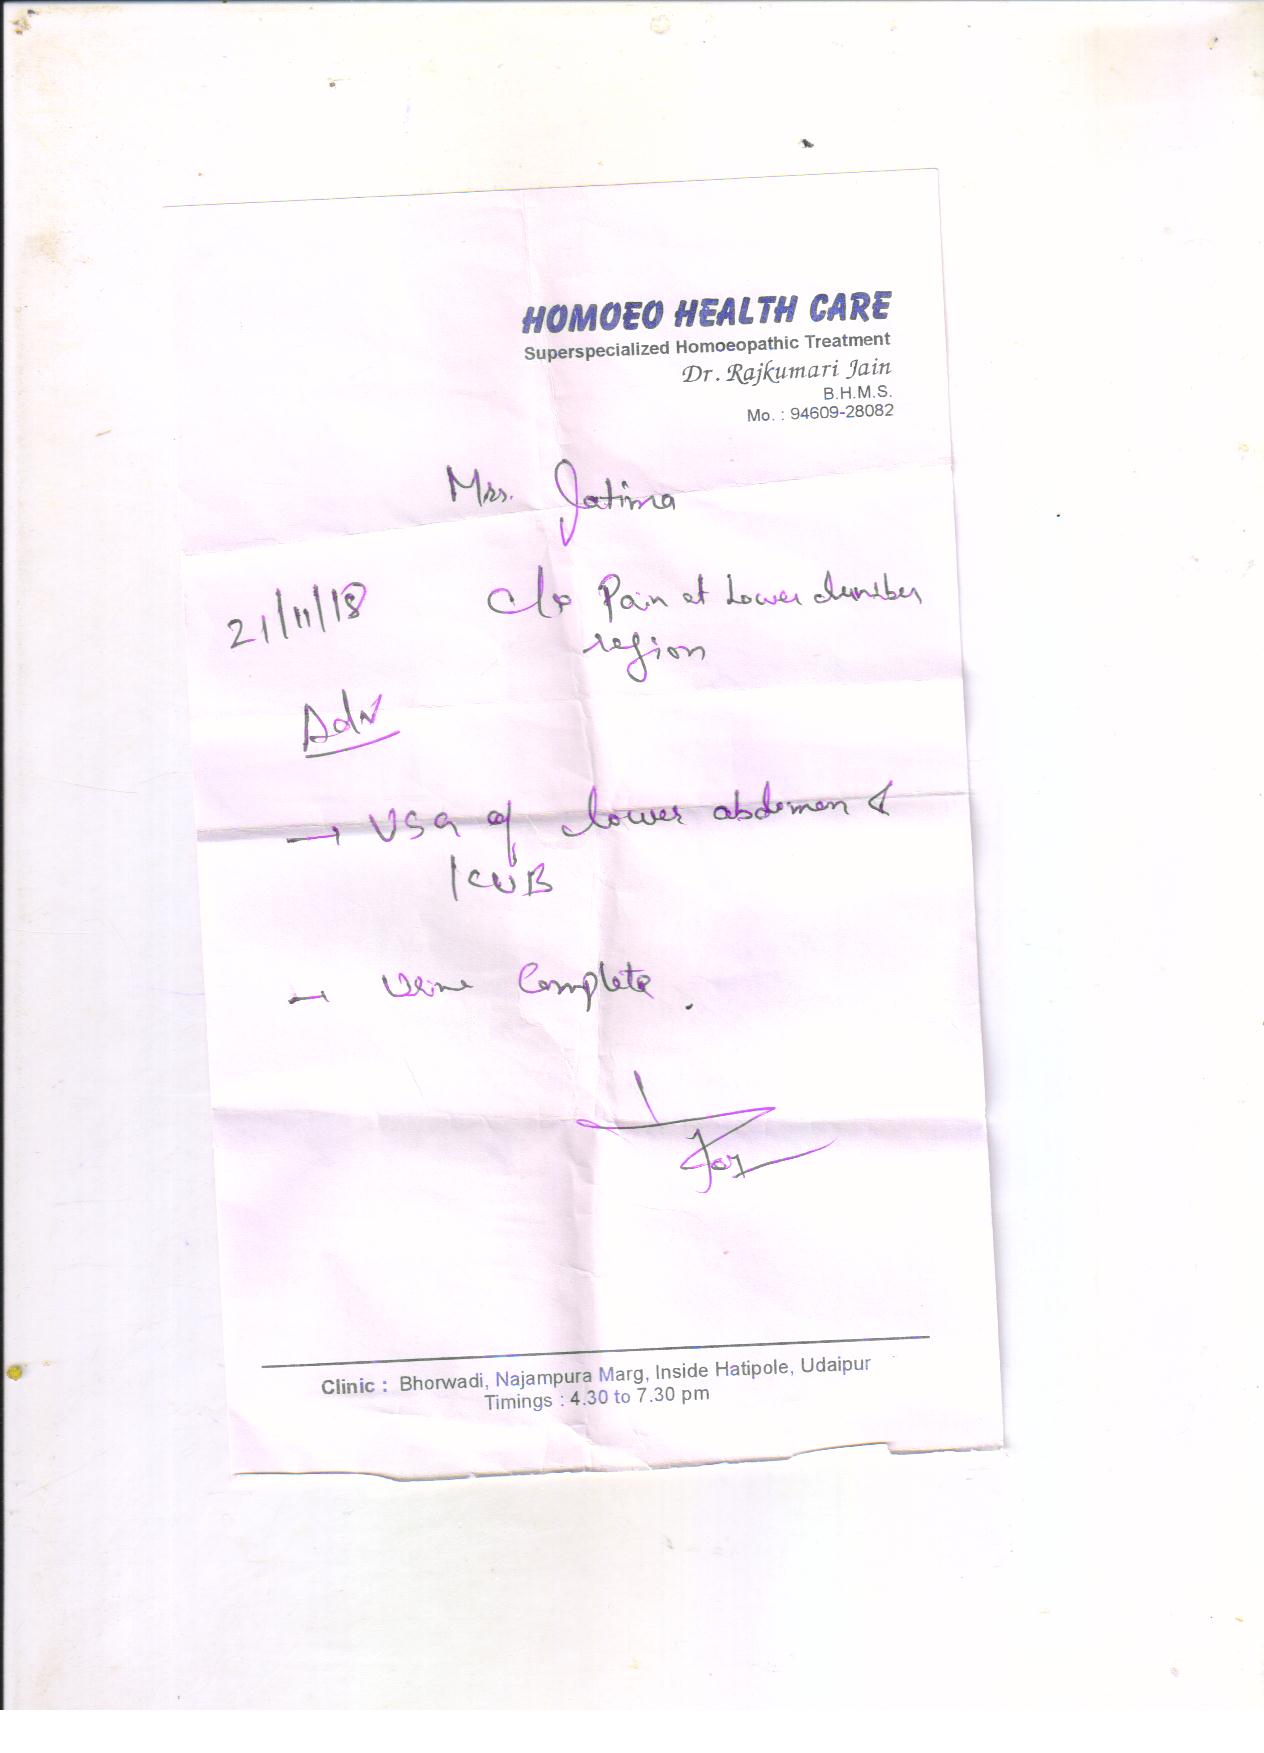 HOMOEO HEALTH CARE
Superspecialized Homoeopathic Treatment
Dr. Rajkumari Jain
B.H.M.S.
Mo. : 94609-28082
Mrs. Fatima
21/11/18 C/o Pain at Lower lumber
region
Adv
→ USG of lower abdomen &
KUB
→ Urine Complete.
Clinic : Bhorwadi, Najampura Marg, Inside Hatipole, Udaipur
Timings : 4.30 to 7.30 pm